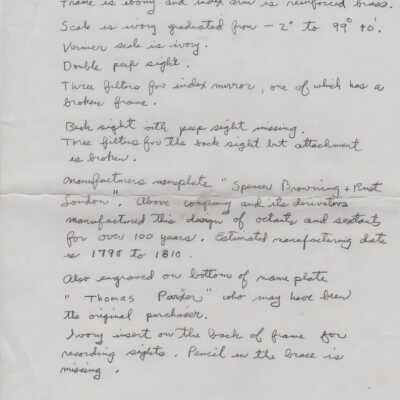 Frame is ebony and index arm is reinforced brass.
Scale is ivory graduated from - 2° to 99° 40'.
Vernier scale is ivory.
Double peep sight.
Three filters for index mirror, one of which has a
broken frame.
Back sight with peep sight missing.
Three filters for the back sight but attachment
is broken.
Manufacturers nameplate "Spencer Browning + Rust
London". Above company and its derivatives
manufactured this design of octants and sextants
for over 100 years. Estimated manufacturing date
is 1798 to 1810.
Also engraved on bottom of name plate
"Thomas Parker" who may have been
the original purchaser.
Ivory insert on the back of frame for
recording sights. Pencil in the brace is
missing.